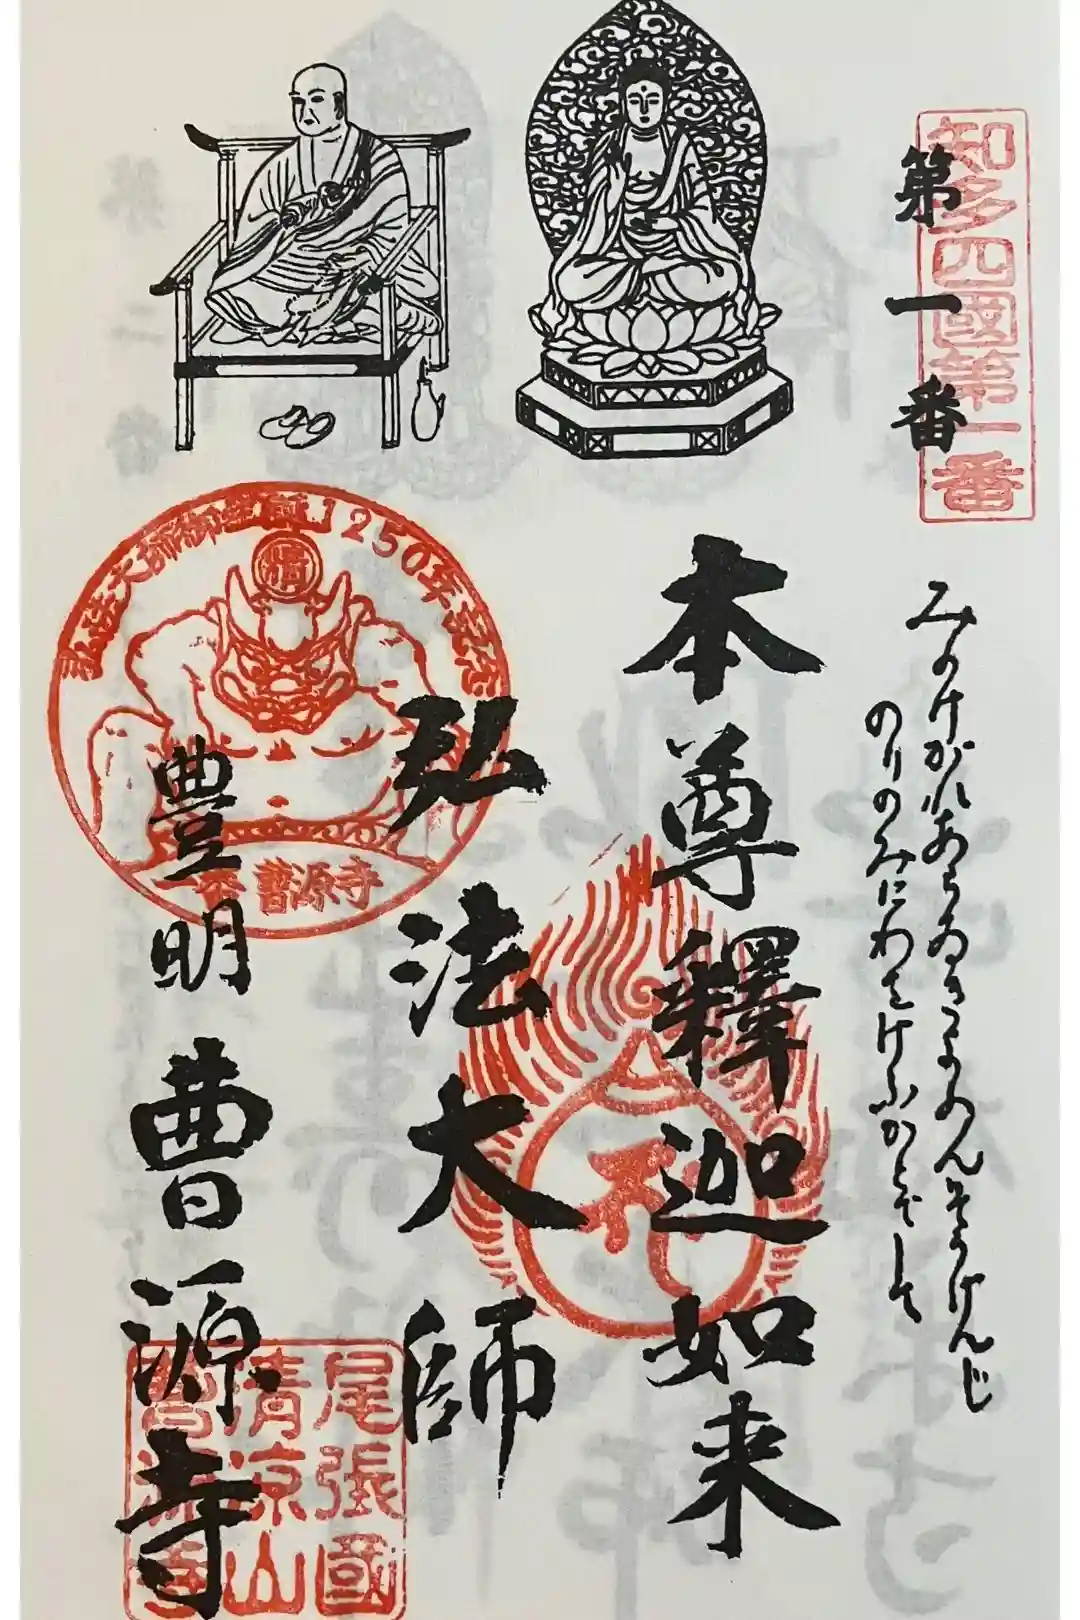 知多四國第一番
第一番
みのけがれあらゐきよめんそうげんじ
のりのみにわをけふかざして
本尊釋迦如来
弘法大師
豊明 曹源寺
弘法大師御生誕1250年記念
一番 曹源寺
尾張國
清凉山
曹源寺